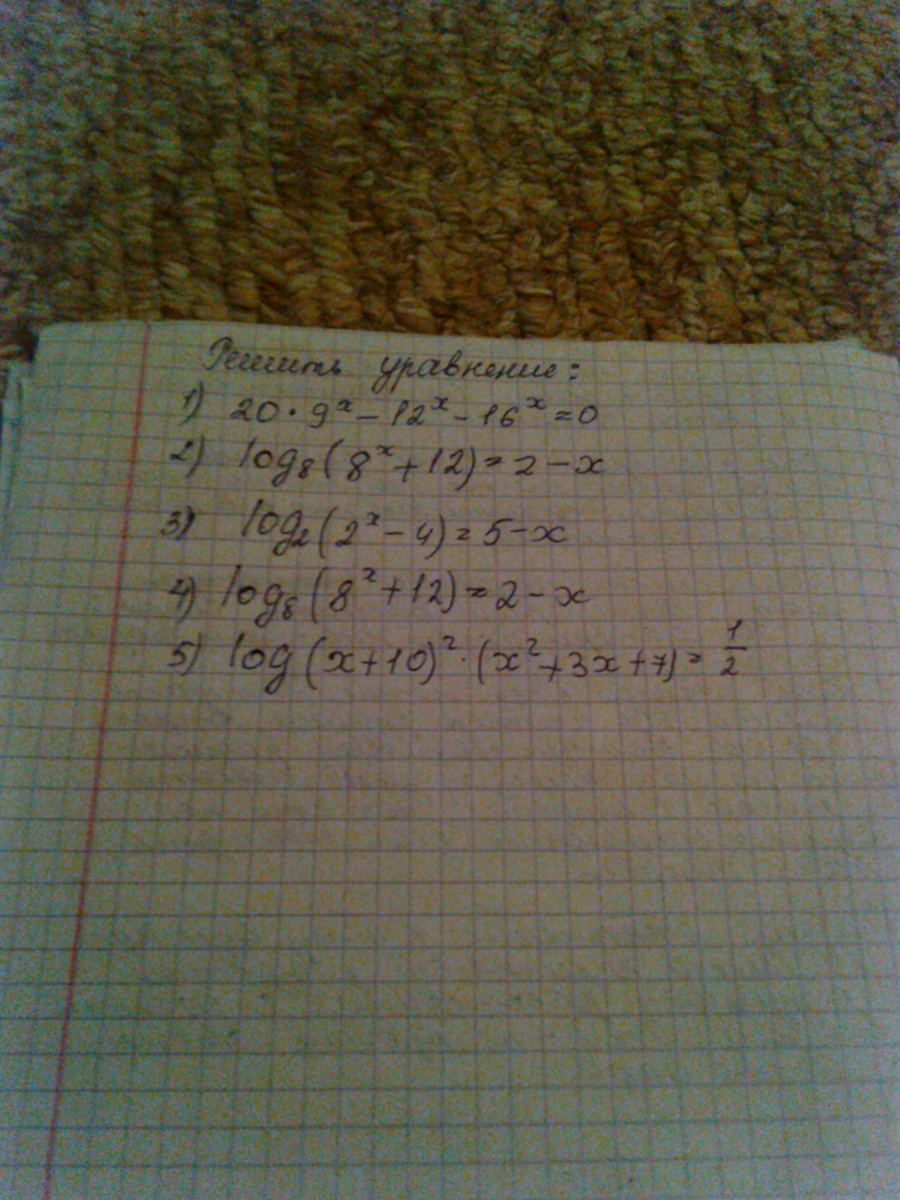 Решить уравнение:
1) 20·9ˣ-12ˣ-16ˣ=0
2) log₈(8ˣ+12)=2-x
3) log₂(2ˣ-4)=5-x
4) log₈(8ˣ+12)=2-x
5) log(x+10)²·(x²+3x+7)=1/2